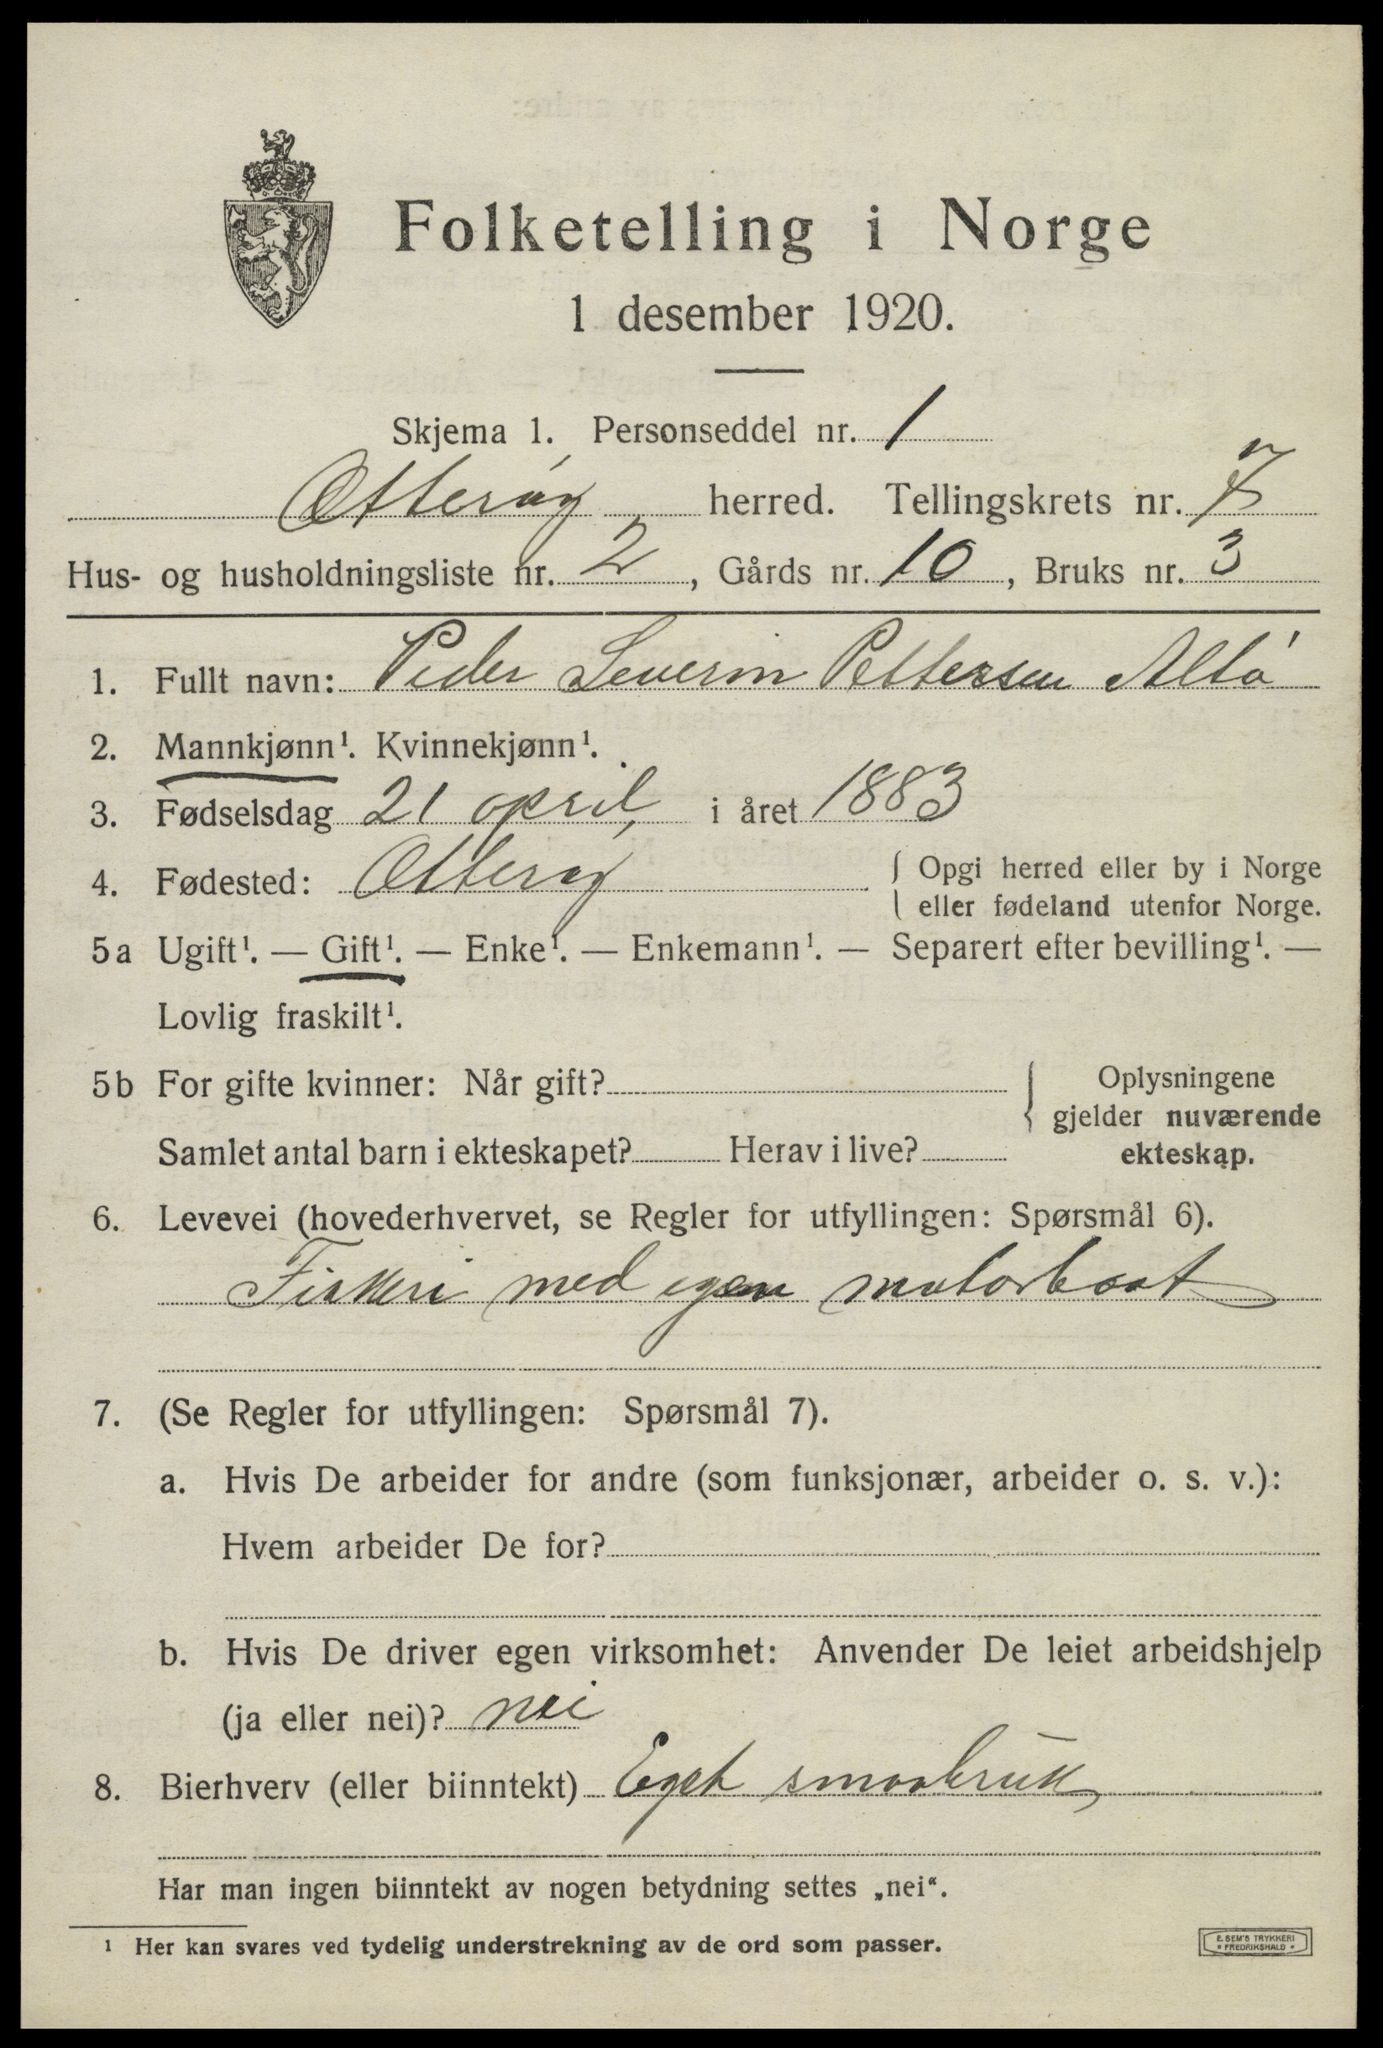 Folketelling i Norge
1 desember 1920.
Skjema 1. Personseddel nr. 1
Otterøy herred. Tellingskrets nr. 7
Hus- og husholdningsliste nr. 2, Gårds nr. 10, Bruks nr. 3
1. Fullt navn: Peder Severin Pettersen Altø
2. Mannkjønn¹. Kvinnekjønn¹.
3. Fødselsdag 21 april, i året 1883
4. Fødested: Otterøy { Opgi herred eller by i Norge
eller fødeland utenfor Norge.
5a Ugift¹. — Gift¹. — Enke¹. — Enkemann¹. — Separert efter bevilling¹. —
Lovlig fraskilt¹.
5b For gifte kvinner: Når gift? { Oplysningene
gjelder nuværende
Samlet antal barn i ekteskapet? Herav i live? ekteskap.
6. Levevei (hovederhvervet, se Regler for utfyllingen: Spørsmål 6).
Fiskeri med egen motorbaat
7. (Se Regler for utfyllingen: Spørsmål 7).
a. Hvis De arbeider for andre (som funksjonær, arbeider o. s. v.):
Hvem arbeider De for?
b. Hvis De driver egen virksomhet: Anvender De leiet arbeidshjelp
(ja eller nei)? nei
8. Bierhverv (eller biinntekt) Eget smaabruk
Har man ingen biinntekt av nogen betydning settes „nei“.
¹ Her kan svares ved tydelig understrekning av de ord som passer.
E. SEM'S TRYKKERI
* FREDRIKSHALD *